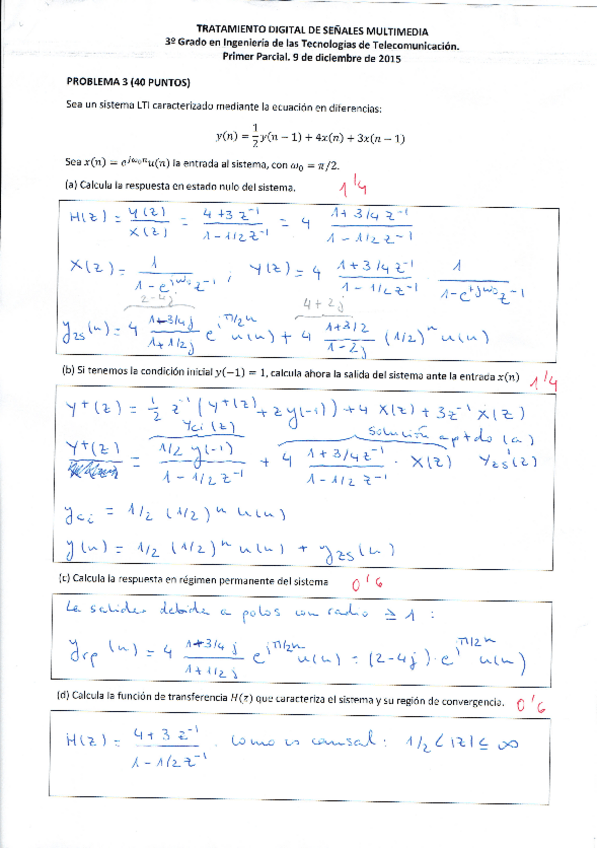 TRATAMIENTO DIGITAL DE SEÑALES MULTIMEDIA
3º Grado en Ingeniería de las Tecnologías de Telecomunicación.
Primer Parcial. 9 de diciembre de 2015
PROBLEMA 3 (40 PUNTOS)
Sea un sistema LTI caracterizado mediante la ecuación en diferencias:
y(n) = 1/2 y(n − 1) + 4x(n) + 3x(n − 1)
Sea x(n) = e^{jω₀n}u(n) la entrada al sistema, con ω₀ = π/2.
(a) Calcula la respuesta en estado nulo del sistema.
1'4
H(z) = Y(z)/X(z) = (4+3 z⁻¹)/(1-1/2 z⁻¹) = 4 (1+3/4 z⁻¹)/(1-1/2 z⁻¹)
X(z) = 1/(1-e^{jω₀}z⁻¹) ; Y(z) = 4 (1+3/4 z⁻¹)/(1-1/2 z⁻¹) · 1/(1-e^{+jω₀}z⁻¹)
2-4j 4+2j
y_zs(n) = 4 (1-3/4j)/(1+1/2j) e^{jπ/2n} u(n) + 4 (1+3/2)/(1-2j) (1/2)ⁿ u(n)
(b) Si tenemos la condición inicial y(−1) = 1, calcula ahora la salida del sistema ante la entrada x(n)
1'4
Y⁺(z) = 1/2 z⁻¹ (Y⁺(z) + z y(-1)) + 4 X(z) + 3z⁻¹ X(z)
Yci(z) solución aptdo (a)
Y⁺(z) = (1/2 y(-1))/(1-1/2 z⁻¹) + 4 (1+3/4z⁻¹)/(1-1/2 z⁻¹) · X(z) Yzs(z)
y_ci = 1/2 (1/2)ⁿ u(n)
y(n) = 1/2 (1/2)ⁿ u(n) + y_zs(n)
(c) Calcula la respuesta en régimen permanente del sistema
0'6
La salida debida a polos con radio ≥ 1 :
y_rp(n) = 4 (1+3/4j)/(1+1/2j) e^{jπ/2n} u(n) = (2-4j)·e^{jπ/2n} u(n)
(d) Calcula la función de transferencia H(z) que caracteriza el sistema y su región de convergencia.
0'6
H(z) = (4+3 z⁻¹)/(1-1/2 z⁻¹) . Como es causal: 1/2 < |z| ≤ ∞